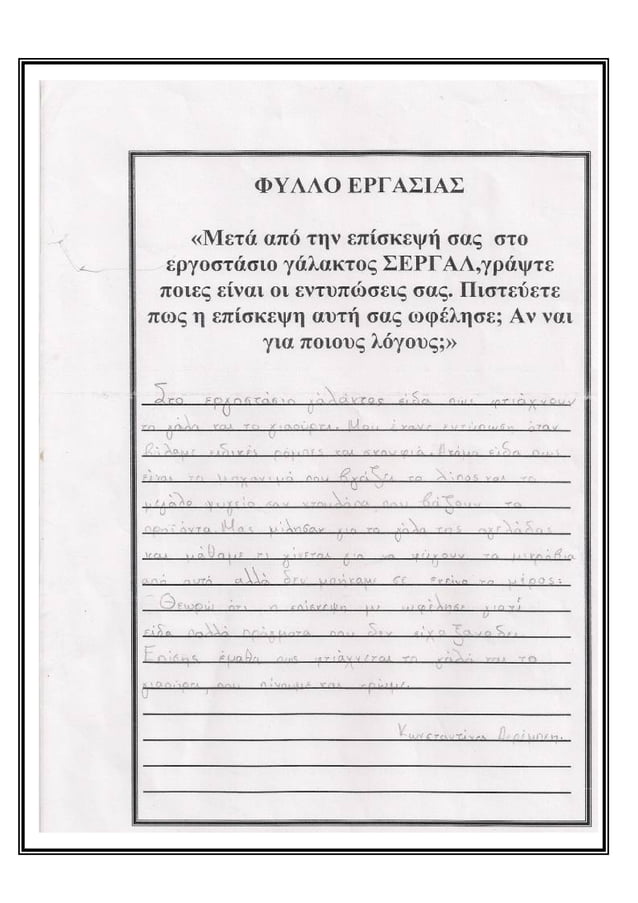 ΦΥΛΛΟ ΕΡΓΑΣΙΑΣ
«Μετά από την επίσκεψή σας στο
εργοστάσιο γάλακτος ΣΕΡΓΑΛ,γράψτε
ποιες είναι οι εντυπώσεις σας. Πιστεύετε
πως η επίσκεψη αυτή σας ωφέλησε; Αν ναι
για ποιους λόγους;»
Στο εργοστάσιο γάλακτος είδα πως φτιάχνουν
το γάλα και το γιαούρτι. Μου έκανε εντύπωση όταν
βάλαμε ειδικές ρόμπες και σκουφιά. Ακόμα είδα πως
είναι το μηχανιμό που βγάζει το λίπος και το
μεγάλο ψυγείο σαν ντουλάπα που βάζουν τα
προϊόντα. Μας μίλησαν για το γάλα της αγελάδας
και μάθαμε τι γίνεται για να φύγουν τα μικρόβια
από αυτό αλλά δεν μπήκαμε σε εκείνο το μέρος.
Θεωρώ ότι η επίσκεψη με ωφέλησε γιατί
είδα πολλά πράγματα που δεν είχα ξαναδεί.
Επίσης έμαθα πως φτιάχνεται το γάλα και το
γιαούρτι, που πίνουμε και τρώμε.
Κωνσταντίνα